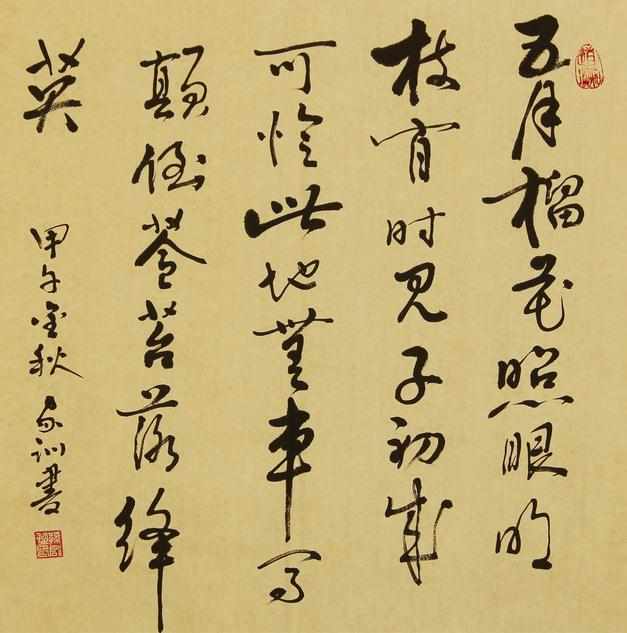 五月榴花照眼明
枝间时见子初成
可怜此地無車马
颠倒蒼苔落绛
英
甲午金秋 家训書